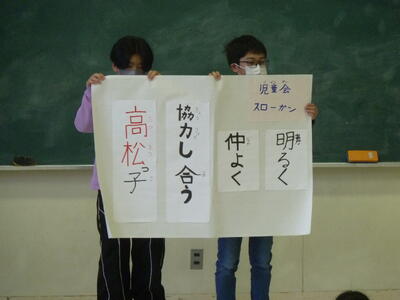 児童会
スローガン
明るく
仲よく
協力し合う
高松っ子